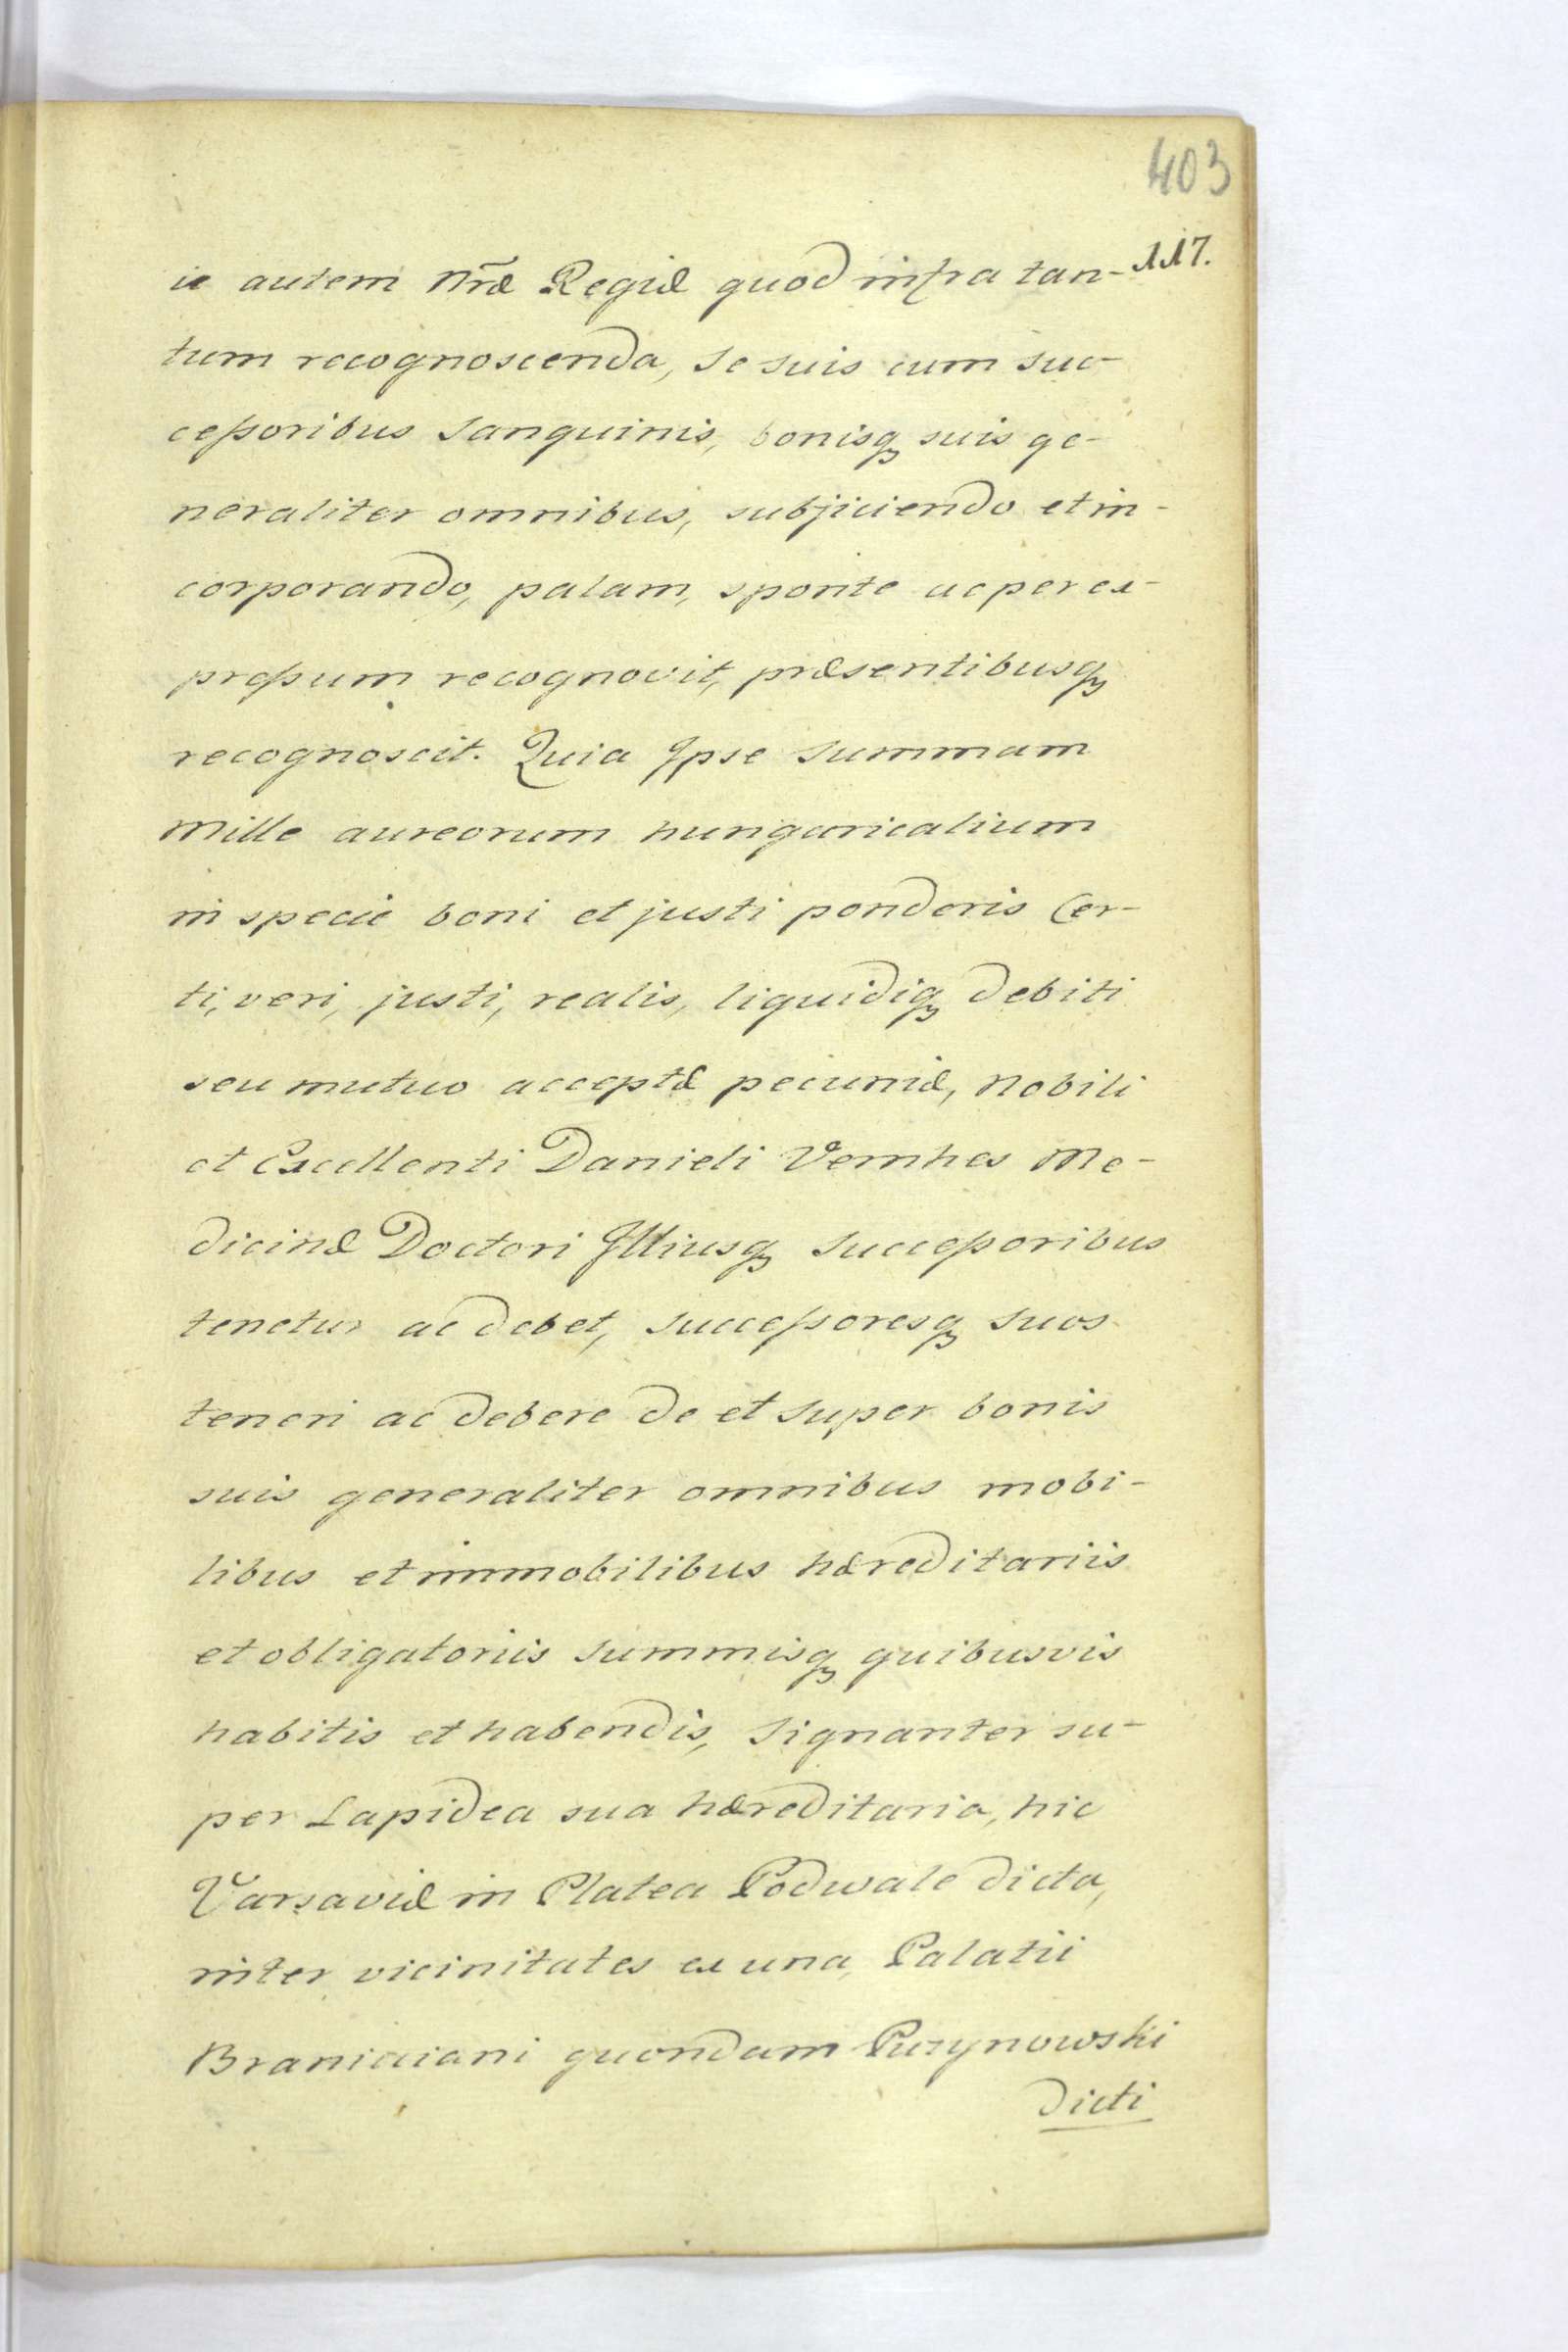 403
117.
ie autem Nr̃æ Regiæ quod infra tan-
tum recognoscenda, se suis cum suc-
ceſsoribus Sanguinis, bonisq suis ge-
neraliter omnibus, subjiciendo et in-
corporando, palam, sponte ac per ex-
preſsum recognovit, præsentibusq
recognoscit. Quia Ipse Summam
Mille aureorum hungaricalium
in specie boni et justi ponderis Cer-
ti, veri, justi, realis, liquidiq debiti
seu mutuo acceptæ pecuniæ, Nobili
et Excellenti Danieli Vernhes Me-
dicinæ Doctori Illiusq Succeſsoribus
tenetur ac debet, Succeſsoresq Suos
teneri ac debere de et Super bonis
suis generaliter omnibus mobi-
libus et immobilibus hæreditariis
et obligatoriis Summisq quibusvis
habitis et habendis, Signanter su-
per Lapidea sua hæreditaria, hic
Varsaviæ in Platea Podwale dicta,
inter vicinitates ex una, Palatii
Braniciani quondam Puzynowski
dicti